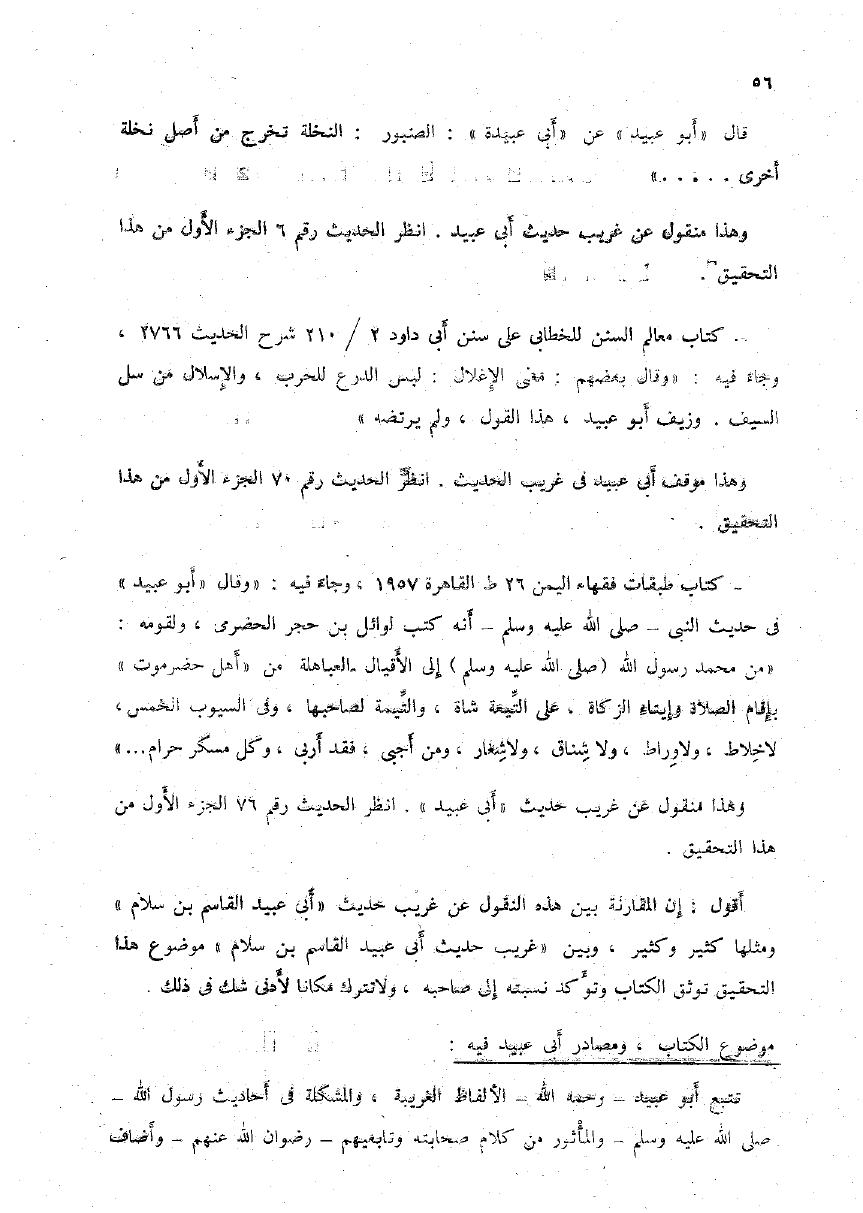 ٥٦
قال «أبو عبيد» عن «أبى عبيدة» : الصنبور : النخلة تخرج من أصل نخلة
أخرى . . . . .»
وهذا منقول عن غريب حديث أبى عبيد . انظر الحديث رقم ٦ الجزء الأول من هذا
التحقيق .
ـ كتاب معالم السنن للخطابى على سنن أبى داود ٢ / ٢١٠ شرح الحديث ٢٧٦٦ ،
وجاء فيه : «وقال بعضهم : معنى الإغلال : لبس الدرع للحرب ، والإسلال من سل
السيف . وزيف أبو عبيد ، هذا القول ، ولم يرتضه »
وهذا موقف أبى عبيد فى غريب الحديث . انظر الحديث رقم ٧٠ الجزء الأول من هذا
التحقيق .
ـ كتاب طبقات فقهاء اليمن ٢٦ ط القاهرة ١٩٥٧ ، وجاء فيه : «وقال «أبو عبيد»
فى حديث النبى ـ صلى الله عليه وسلم ـ أنه كتب لوائل بن حجر الحضرى ، ولقومه :
«من محمد رسول الله (صلى الله عليه وسلم) إلى الأقيال العباهلة من «أهل حضرموت »
بإقام الصلاة وإيتاء الزكاة ، على التِّيعة شاة ، والتِّيمة لصاحبها ، وفى السيوب الخمس ،
لاخِلاط ، ولاوِراط ، ولا شِناق ، ولاشِغار ، ومن أجبى ، فقد أربى ، وكل مسكر حرام...»
وهذا منقول عن غريب حديث «أبى عبيد» . انظر الحديث رقم ٧٦ الجزء الأول من
هذا التحقيق .
أقول : إن المقارنة بين هذه النقول عن غريب حديث «أبى عبيد القاسم بن سلام »
ومثلها كثير وكثير ، وبين «غريب حديث أبى عبيد القاسم بن سلام » موضوع هذا
التحقيق توثق الكتاب وتؤكد نسبته إلى صاحبه ، ولاتترك مكانا لأدنى شك فى ذلك .
موضوع الكتاب ، ومصادر أبى عبيد فيه :
تتبع أبو عبيد ـ رحمه الله ـ الألفاظ الغريبة ، والمشكلة فى أحاديث رسول الله ـ
صلى الله عليه وسلم ـ والمأثور من كلام صحابته وتابعيهم ـ رضوان الله عنهم ـ وأضاف